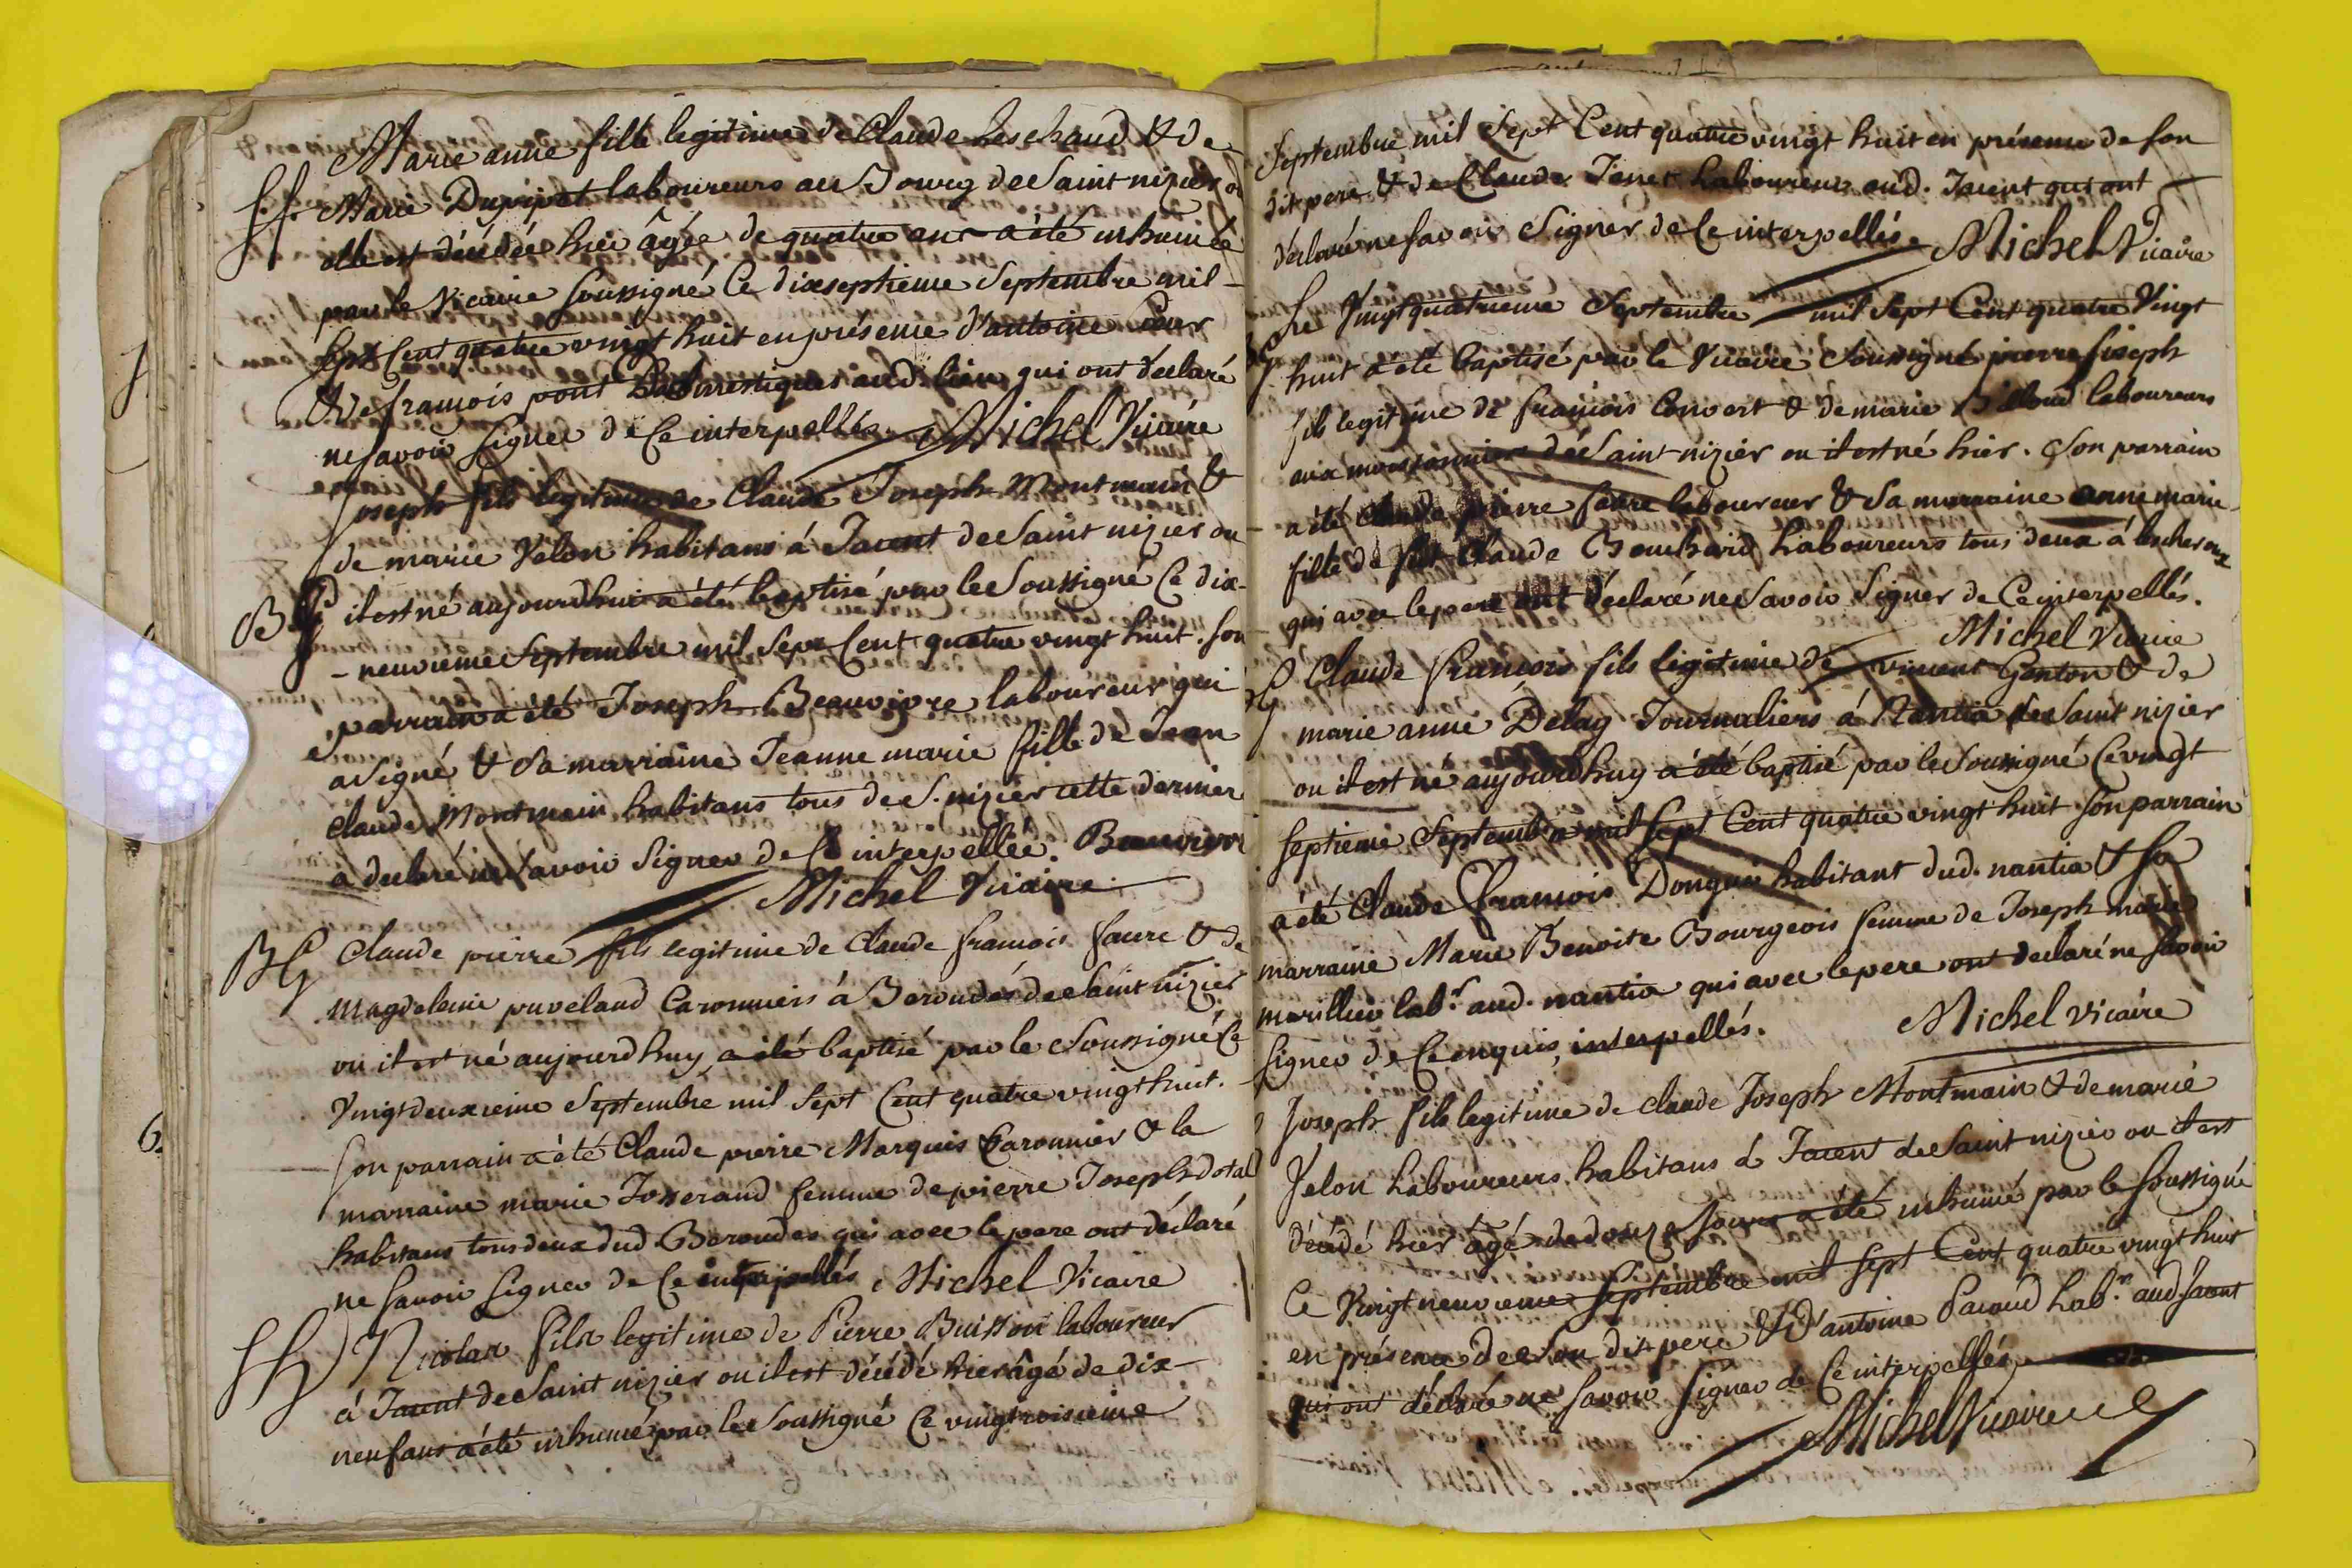 Marie anne fille legitime de Claude Leschaud & de
Sf. Marie Dupipet laboureurs au Bourg de Saint nizier où
elle est décédée hier âgée de quatre ans a été inhumée
par le Vicaire soussigné Ce dixseptieme Septembre mil
Sept Cent quatre vingt huit en présence d'antoine
& de francois pont Domestiques aud. lieu qui ont déclaré
ne savoir signer de Ce interpellés. Michel Vicaire
Joseph fils legitime de Claude Joseph Montmain &
de marie Velon habitans á Jacent de Saint nizier ou
B G il est né aujourdhui a été baptisé par le Soussigné Ce dix-
- neuvieme Septembre mil Sept Cent quatre vingt huit. son
parrain a été Joseph Beauvivre laboureur qui
a signé & Sa marraine Jeanne marie fille de Jean
claude Montmain habitans tous de S. nizier cette derniere
a declaré ne savoir Signer de Ce interpellée. Beauvivre
Michel Vicaire
B G Claude pierre fils legitime de Claude francois faure & de
Magdeleine puveland Caronniers á Beroudes de Saint nizier
ou il est né aujourdhuy a été baptisé par le Soussigné Ce
Vingtdeuxieme Septembre mil Sept Cent quatre vingt huit.
Son parrain a été Claude pierre Marquis Caronnier & la
marraine marie Josserand femme de pierre Joseph dotal
habitans tous deux dud Beroudes qui avec le pere ont déclaré
ne savoir signer de Ce interpellés Michel Vicaire
S G Nicolas fils legitime de Pierre Buisson laboureur
á Jacent de Saint nizier ou il est décédé hier âgé de dix-
neuf ans a été inhumé par le Soussigné Ce vingtroisieme
Septembre mil Sept Cent quatre vingt huit en présence de son
dit pere & de Claude Janet Laboureurs aud. Jacent qui ont
déclaré ne savoir Signer de Ce interpellés. Michel Vicaire
Le Vingtquatrieme Septembre mil Sept Cent quatre Vingt
huit a été baptisé par le Vicaire Soussigné pierre joseph
fils legitime de francois Convert & de marie Billoud laboureurs
aux de Saint nizier ou il est né hier. Son parrain
a été Claude pierre faure laboureur & Sa marraine anne marie
fille de Claude Bouchard Laboureurs tous deux á
qui avec le pere ont déclaré ne Savoir Signer de Ce interpellés.
Michel Vicaire
G Claude francois fils legitime de vincent Genton & de
marie anne Delay Journaliers á Nantia de Saint nizier
ou il est né aujourdhuy a été baptisé par le Soussigné Ce vingt
septieme Septembre mil Sept Cent quatre vingt huit Son parrain
a été Claude francois Donguy habitant dud. nantia & sa
marraine Marie Benoite Bourgeois femme de Joseph marie
marillier lab.r aud. nantia qui avec le pere ont declaré ne savoir
signer de Ce enquis, interpellés. Michel vicaire
Joseph fils legitime de claude Joseph Montmain & de marie
Velon Laboureurs habitans á Jacent de Saint nizier ou il est
décédé hier âgé de douze jours a été inhumé par le Soussigné
Ce Vingt neuvieme Septembre mil Sept Cent quatre vingt huit
en présence de Son dit pere & d'antoine Pacaud Lab.r aud. Jacent
qui ont déclaré ne savoir Signer de Ce interpellés
Michel Vicaire